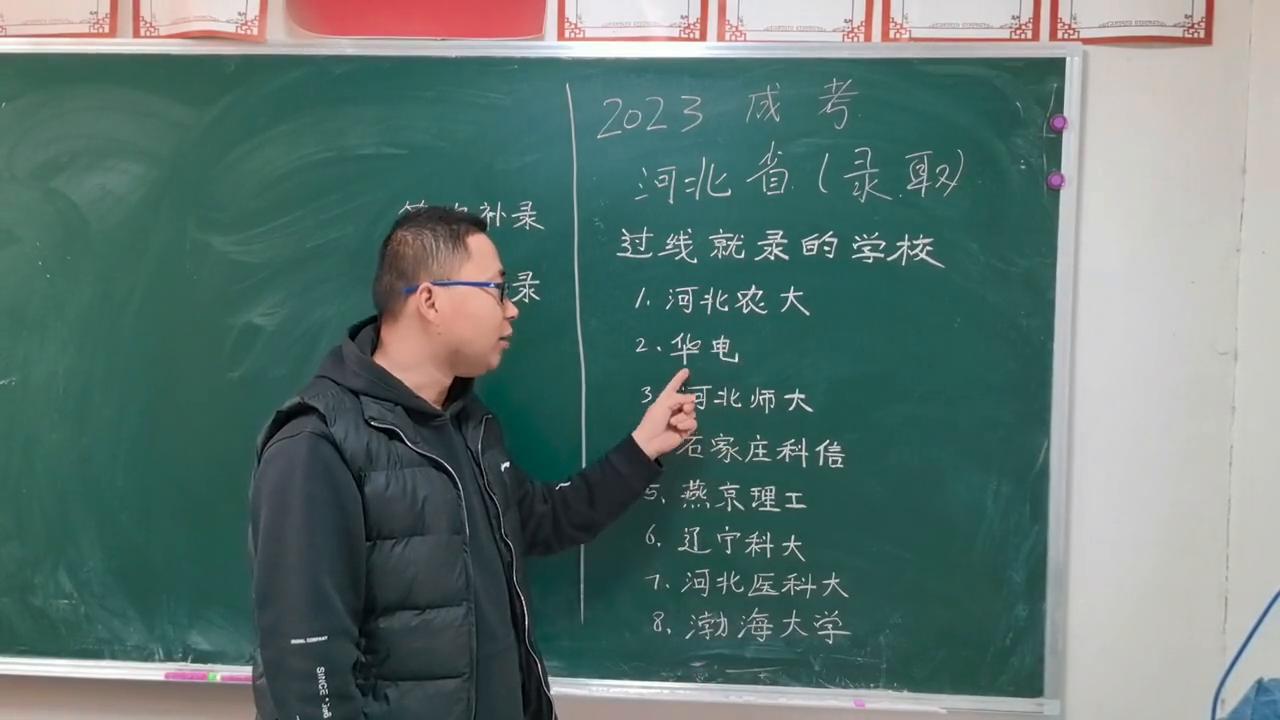 补录
录
2023 成考
河北省(录取)
过线就录的学校
1. 河北农大
2. 华电
3. 河北师大
石家庄科信
5. 燕京理工
6. 辽宁科大
7. 河北医科大
8. 渤海大学
SINCE